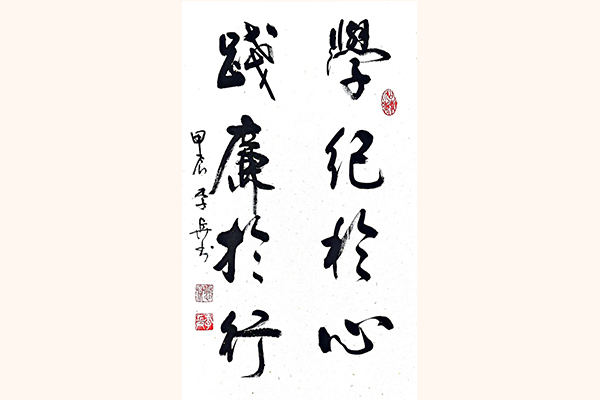 學紀於心
踐廉於行
甲辰李兵书